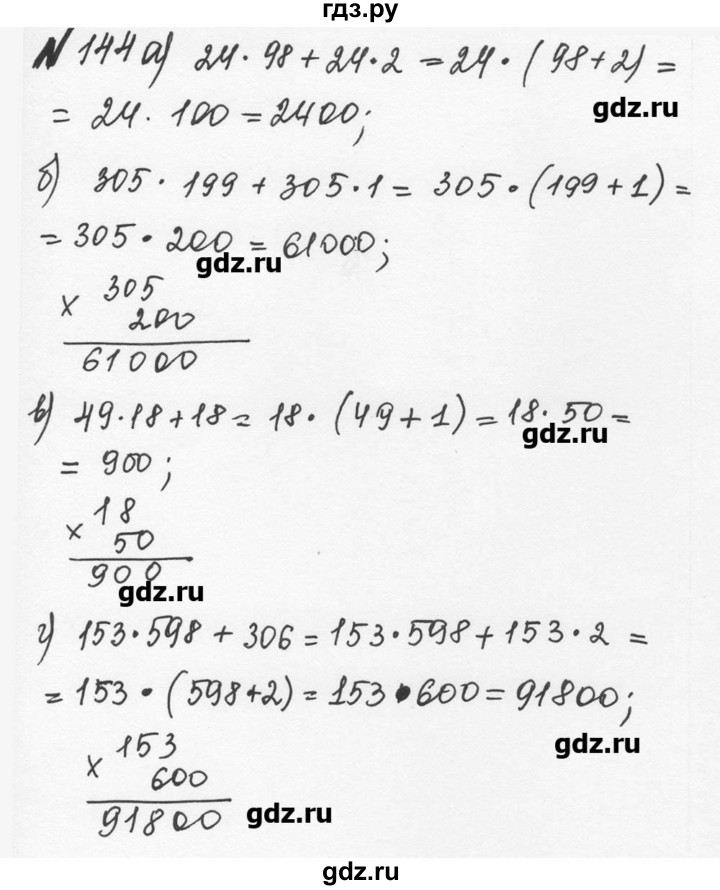 гдз.ру
N 144 а) 24 · 98 + 24 · 2 = 24 · (98 + 2) =
= 24 · 100 = 2400;
gdz.ru
б) 305 · 199 + 305 · 1 = 305 · (199 + 1) =
= 305 · 200 = 61000;
gdz.ru
× 305
200
61000
в) 49 · 18 + 18 = 18 · (49 + 1) = 18 · 50 =
gdz.ru
= 900;
× 18
50
900
gdz.ru
г) 153 · 598 + 306 = 153 · 598 + 153 · 2 =
= 153 · (598 + 2) = 153 · 600 = 91800;
gdz.ru
× 153
600
91800
gdz.ru
gdz.ru